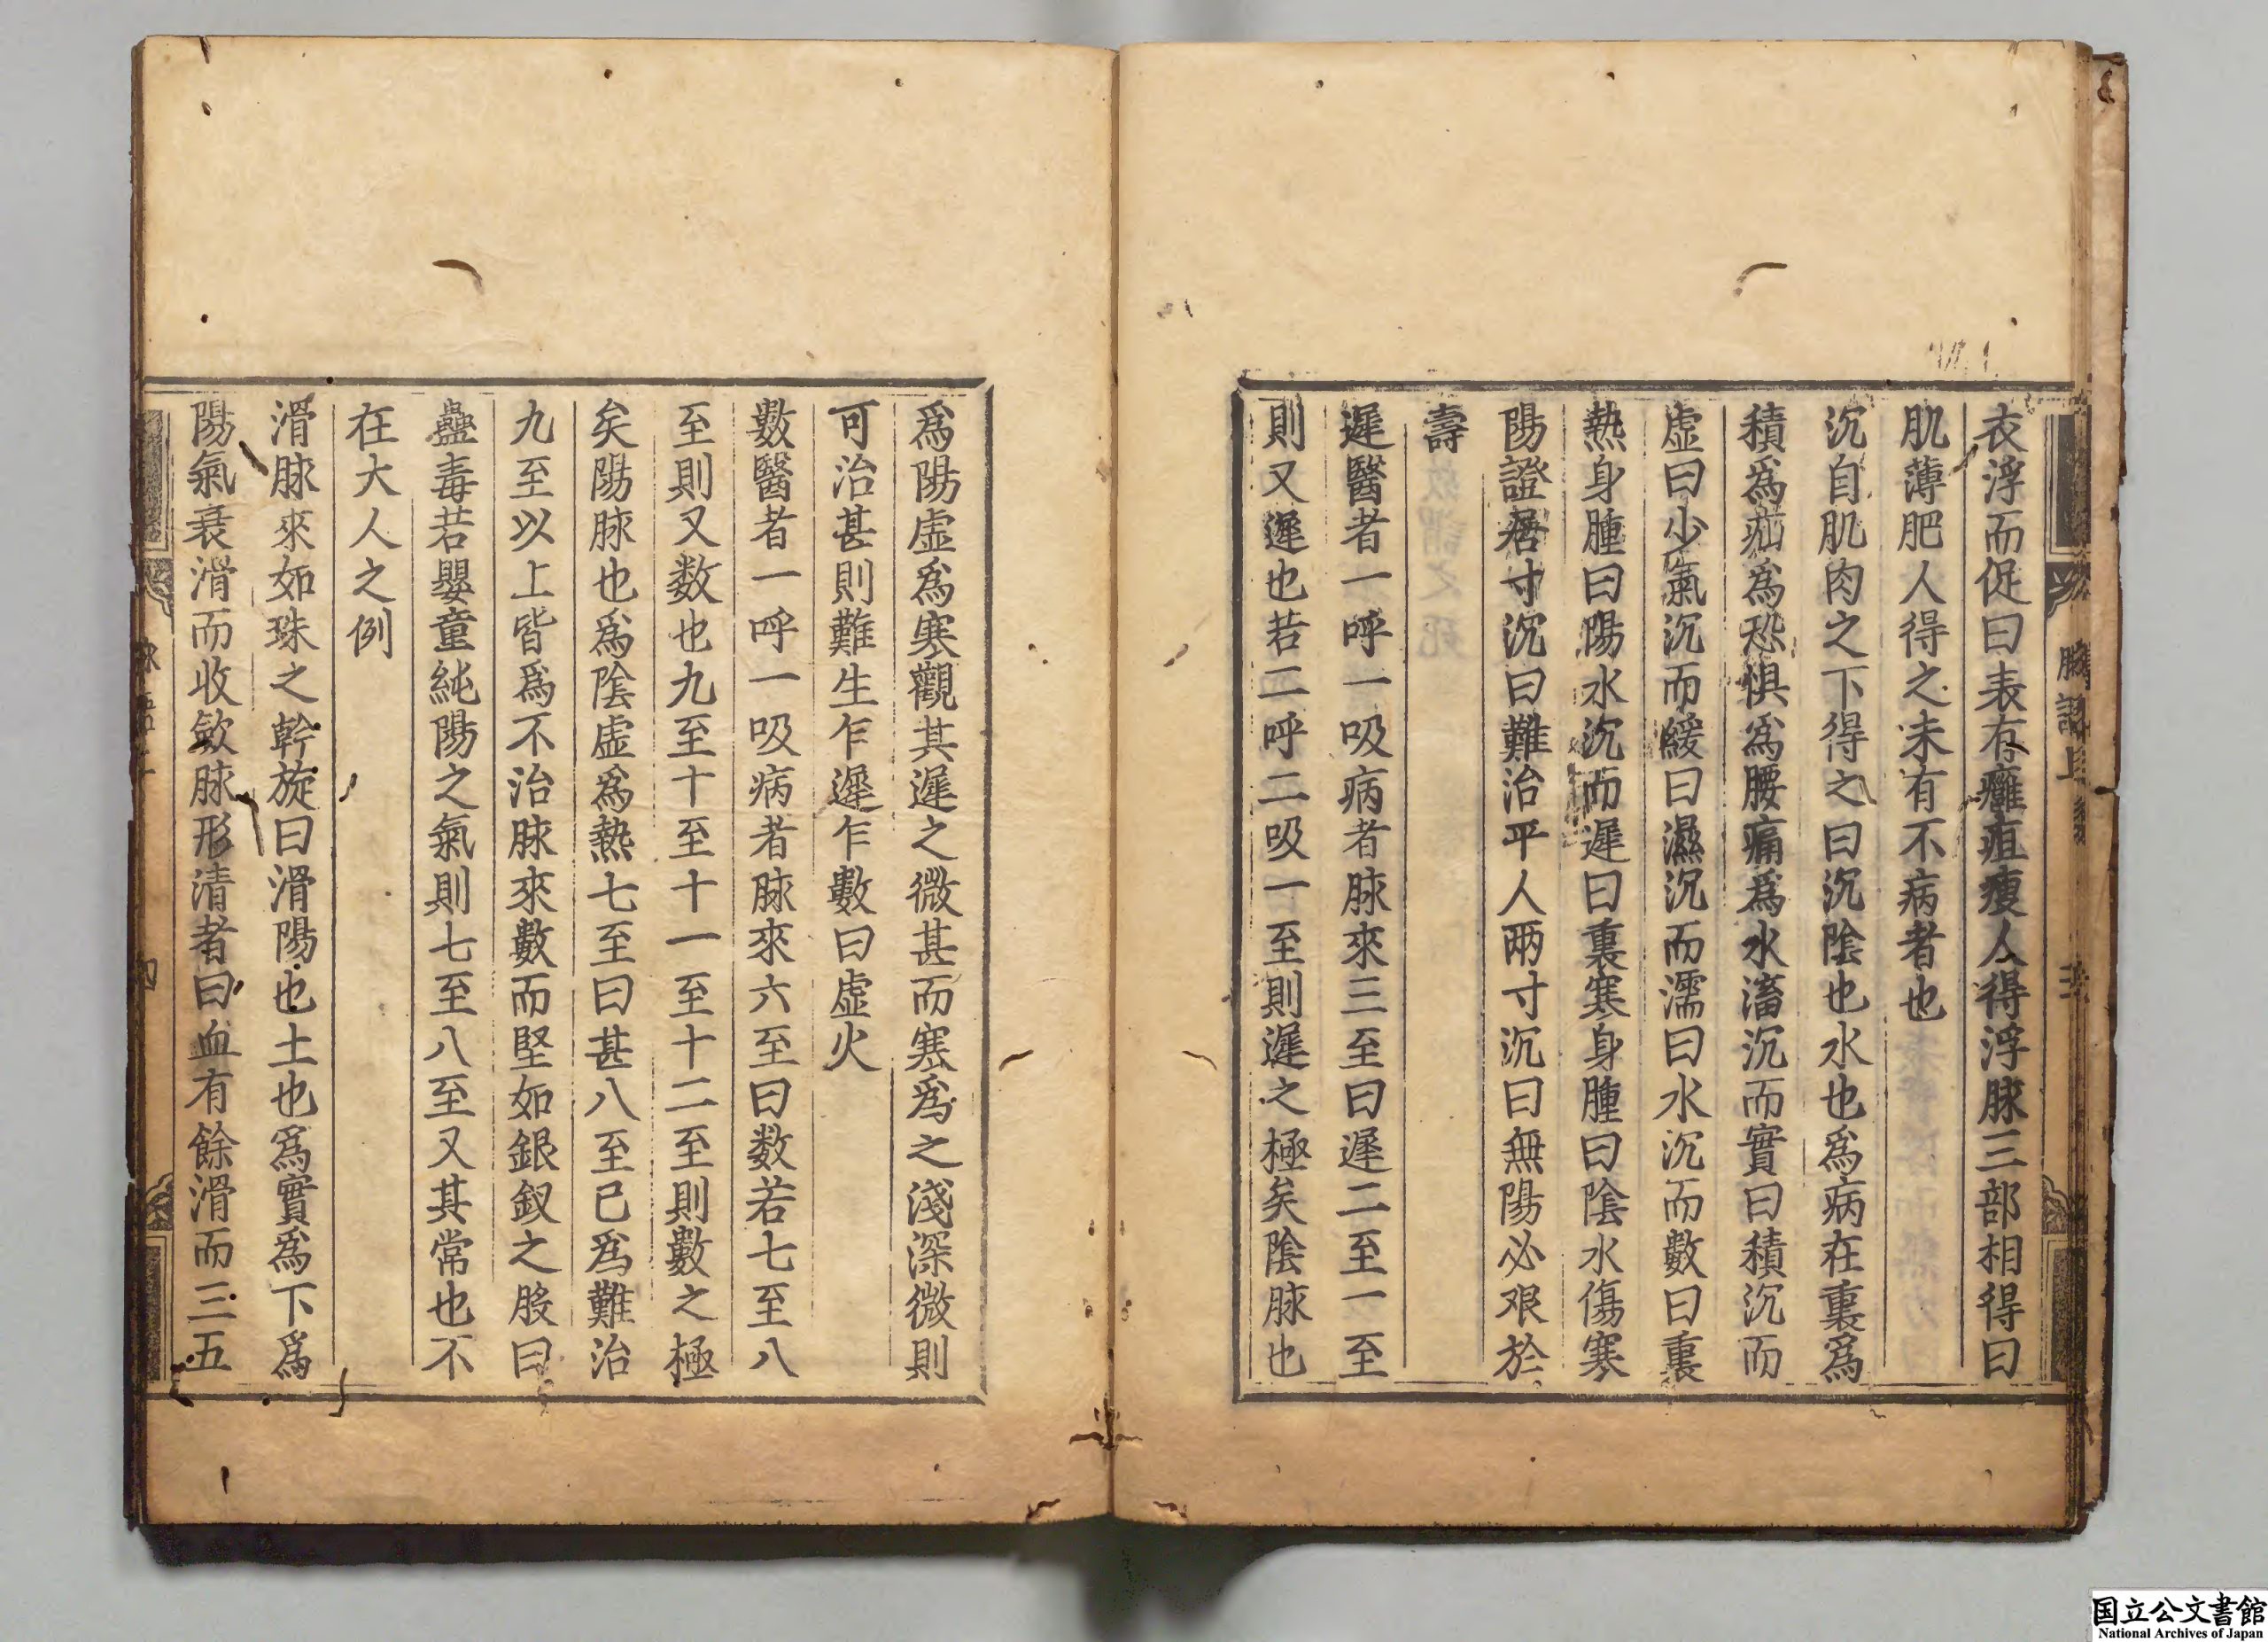 衣浮而促曰表有癰疽瘦人得浮脉三部相得曰
肌薄肥人得之未有不病者也
沉自肌肉之下得之曰沉陰也水也爲病在裏爲
積爲疝爲恐惧爲腰痛爲水畜沉而實曰積沉而
虛曰少氣沉而緩曰濕沉而濡曰水沉而數曰裏
熱身腫曰陽水沉而遲曰裏寒身腫曰陰水傷寒
陽證若寸沉曰難治平人兩寸沉曰無陽必艰於
壽
遲醫者一呼一吸病者脉來三至曰遲二至一至
則又遲也若二呼二吸一至則遲之極矣陰脉也
爲陽虛爲寒觀其遲之微甚而寒爲之淺深微則
可治甚則難生乍遲乍數曰虛火
數醫者一呼一吸病者脉來六至曰数若七至八
至則又数也九至十至十一至十二至則數之極
矣陽脉也爲陰虛爲熱七至曰甚八至已爲難治
九至以上皆爲不治脉來數而堅如銀釵之股曰
蠱毒若嬰童純陽之氣則七至八至又其常也不
在大人之例
滑脉來如珠之斡旋曰滑陽也土也爲實爲下爲
陽氣衰滑而收斂脉形清者曰血有餘滑而三五
脉語上
四
国立公文書館
National Archives of Japan